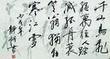 千山鳥飛
絕萬徑人
蹤滅孤舟
蓑笠翁獨釣
寒江雪